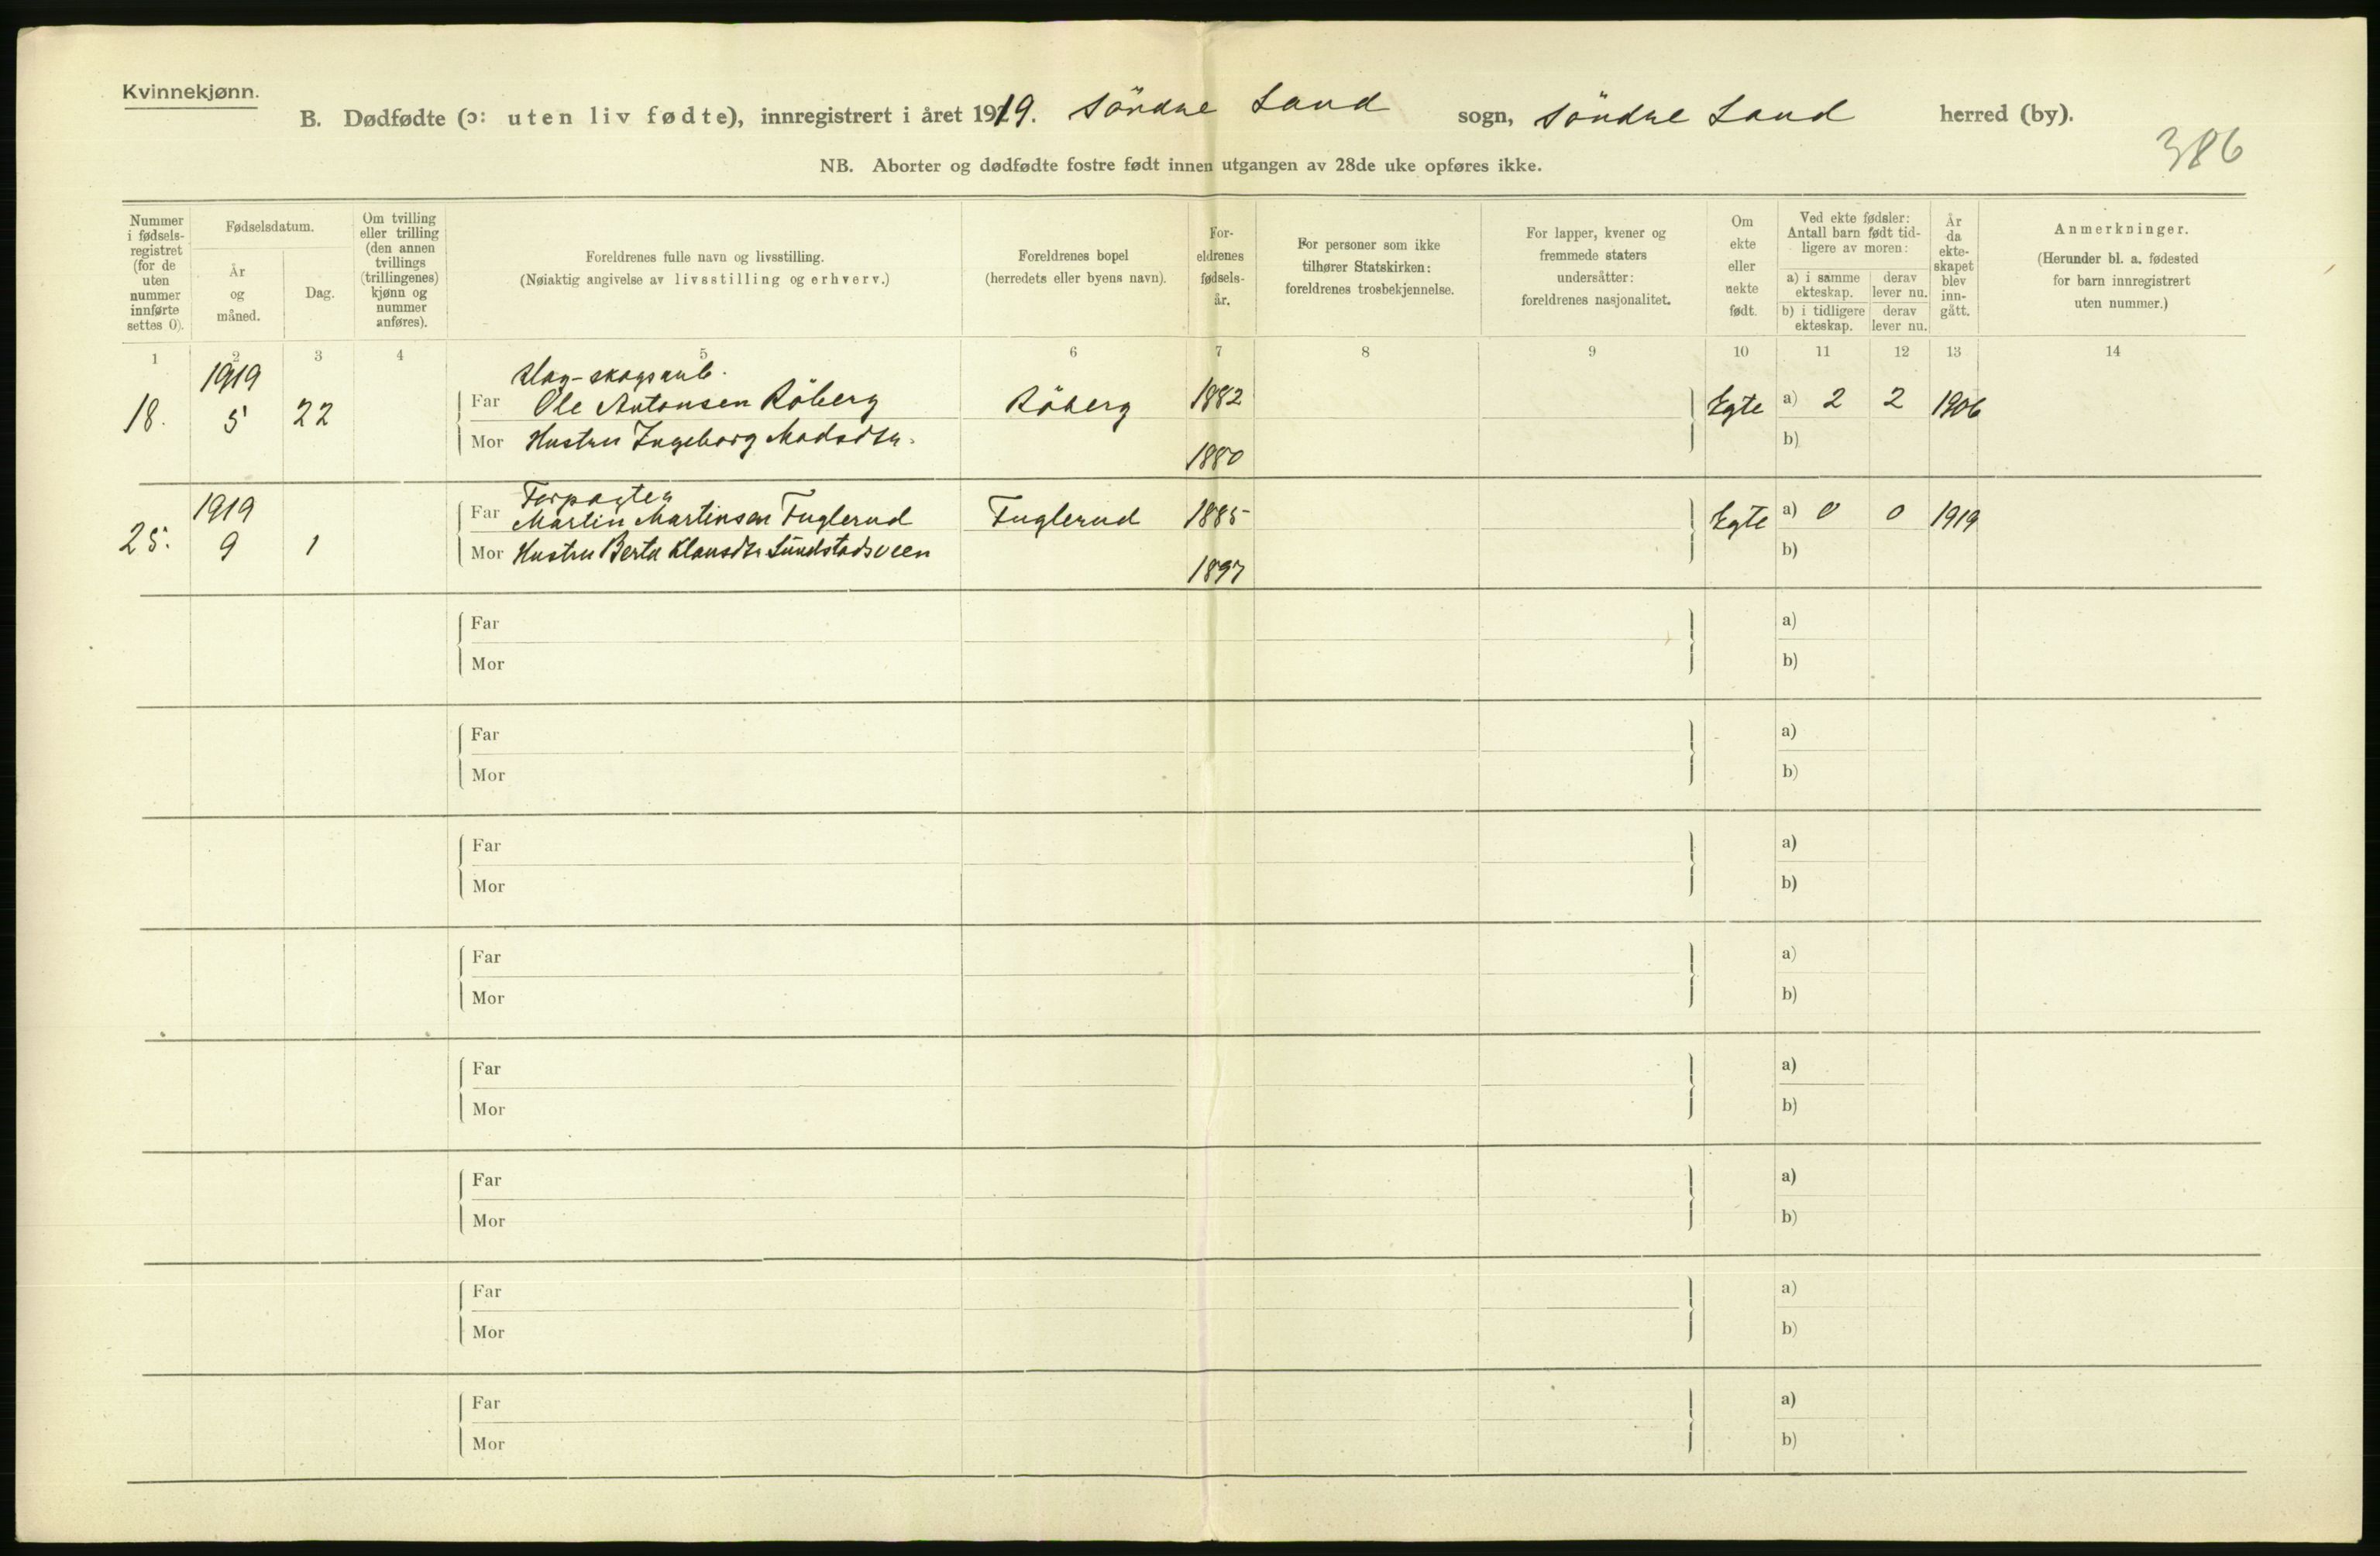 Kvinnekjønn.
B. Dødfødte (ɔ: uten liv fødte), innregistrert i året 1919. Söndre Land sogn, Söndre Land herred (by).
386
NB. Aborter og dødfødte fostre født innen utgangen av 28de uke opføres ikke.
Nummer i fødsels-registret (for de uten nummer innførte settes 0).
Fødselsdatum.
År og måned.
Dag.
Om tvilling eller trilling (den annen tvillings (trillingenes) kjønn og nummer anføres).
Foreldrenes fulle navn og livsstilling.
(Nøiaktig angivelse av livsstilling og erhverv.)
Foreldrenes bopel
(herredets eller byens navn).
For-eldrenes fødsels-år.
For personer som ikke tilhører Statskirken: foreldrenes trosbekjennelse.
For lapper, kvener og fremmede staters undersåtter: foreldrenes nasjonalitet.
Om ekte eller uekte født.
Ved ekte fødsler: Antall barn født tid-ligere av moren:
a) i samme ekteskap.
derav lever nu.
b) i tidligere ekteskap.
derav lever nu.
År da ekte-skapet blev inn-gått.
Anmerkninger.
(Herunder bl. a. fødested for barn innregistrert uten nummer.)
1 2 3 4 5 6 7 8 9 10 11 12 13 14
1919
18. 5 22
Far Ole Antonsen Röberg Röberg 1882 Egte a) 2 2 1906
Mor Hustru Ingeborg Madsdtr. 1880 b)
1919
Forpagter
25. 9 1
Far Martin Martinsen Fuglerud Fuglerud 1885 Egte a) 0 0 1919
Mor Hustru Berta Klausdtr Lundstadsveen 1897 b)
Far a)
Mor b)
Far a)
Mor b)
Far a)
Mor b)
Far a)
Mor b)
Far a)
Mor b)
Far a)
Mor b)
Far a)
Mor b)
Far a)
Mor b)